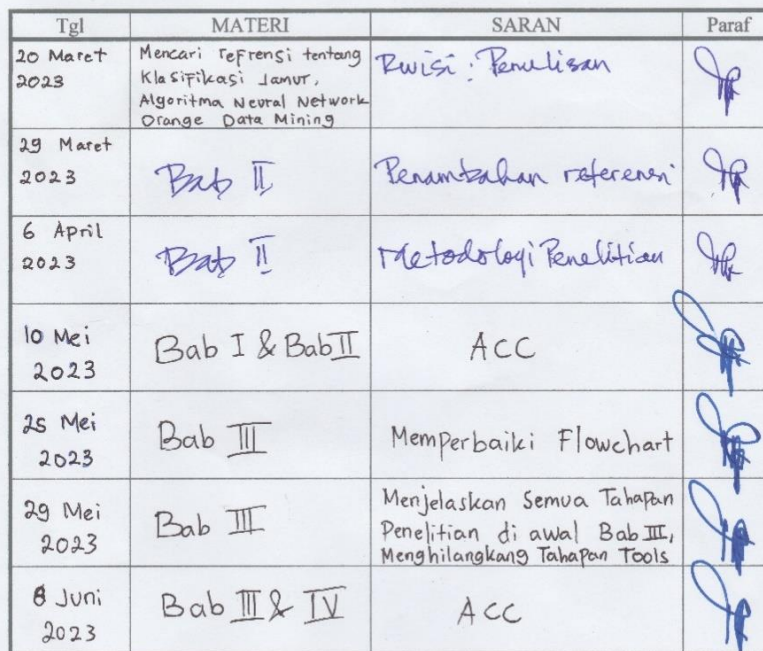 Tgl MATERI SARAN Paraf
20 Maret 2023
Mencari refrensi tentang
Klasifikasi Jamur,
Algoritma Neural Network
Orange Data Mining
Revisi : Penulisan
29 Maret
2023
Bab II
Penambahan referensi
6 April
2023
Bab II
Metodologi Penelitian
10 Mei
2023
Bab I & Bab II
ACC
25 Mei
2023
Bab III
Memperbaiki Flowchart
29 Mei
2023
Bab III
Menjelaskan Semua Tahapan
Penelitian di awal Bab III,
Menghilangkang Tahapan Tools
8 Juni
2023
Bab III & IV
ACC